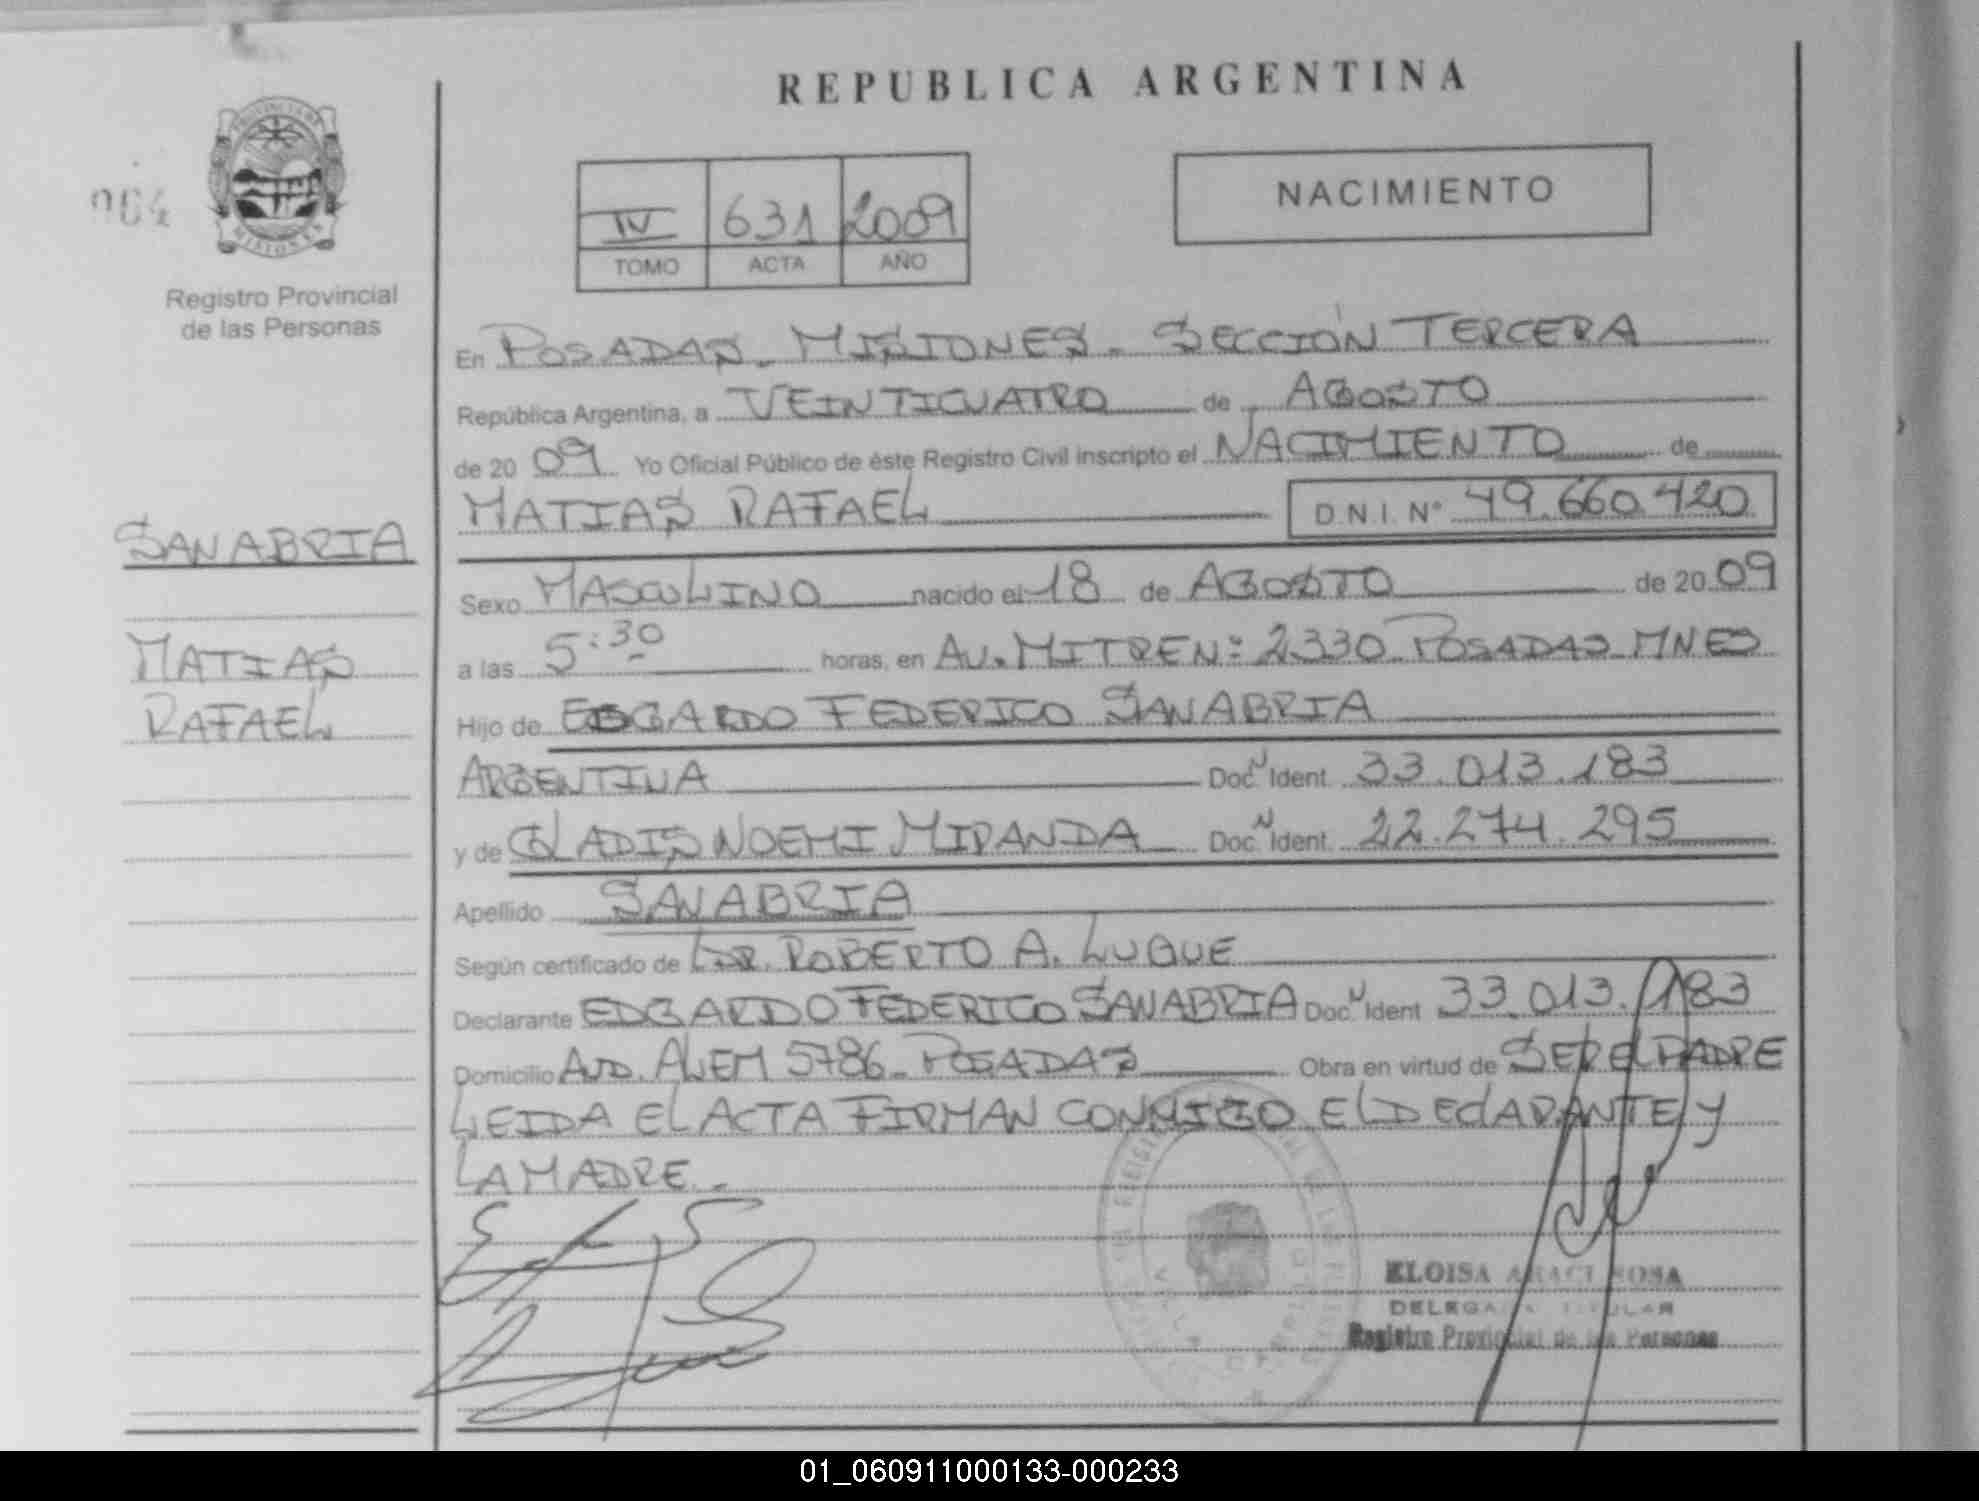 REPUBLICA ARGENTINA
PROVINCIA DE
MISIONES
Registro Provincial
de las Personas
IV 631 2009
TOMO ACTA AÑO
NACIMIENTO
En POSADAS - MISIONES - SECCIÓN TERCERA
República Argentina, a VEINTICUATRO de AGOSTO
de 2009 Yo Oficial Público de éste Registro Civil inscripto el NACIMIENTO de
MATIAS RAFAEL D.N.I. Nº 49.660.420
SANABRIA
Sexo MASCULINO nacido el 18 de AGOSTO de 2009
MATIAS
RAFAEL
a las 5:30 horas, en AV. MITRE Nº 2330 POSADAS MNES
Hijo de EDGARDO FEDERICO SANABRIA
ARGENTINA Doc. N Ident. 33.013.183
y de GLADIS NOEMI MIRANDA Doc. N Ident. 22.274.295
Apellido SANABRIA
Según certificado de DR. ROBERTO A. LUQUE
Declarante EDGARDO FEDERICO SANABRIA Doc. N Ident 33.013.183
Domicilio AVD. ALEM 5786 - POSADAS Obra en virtud de SER EL PADRE
LEIDA EL ACTA FIRMAN CONMIGO EL DECLARANTE Y
LA MADRE -
ELOISA ROSA
DELEGADA TITULAR
Registro Provincial de las Personas
01_060911000133-000233